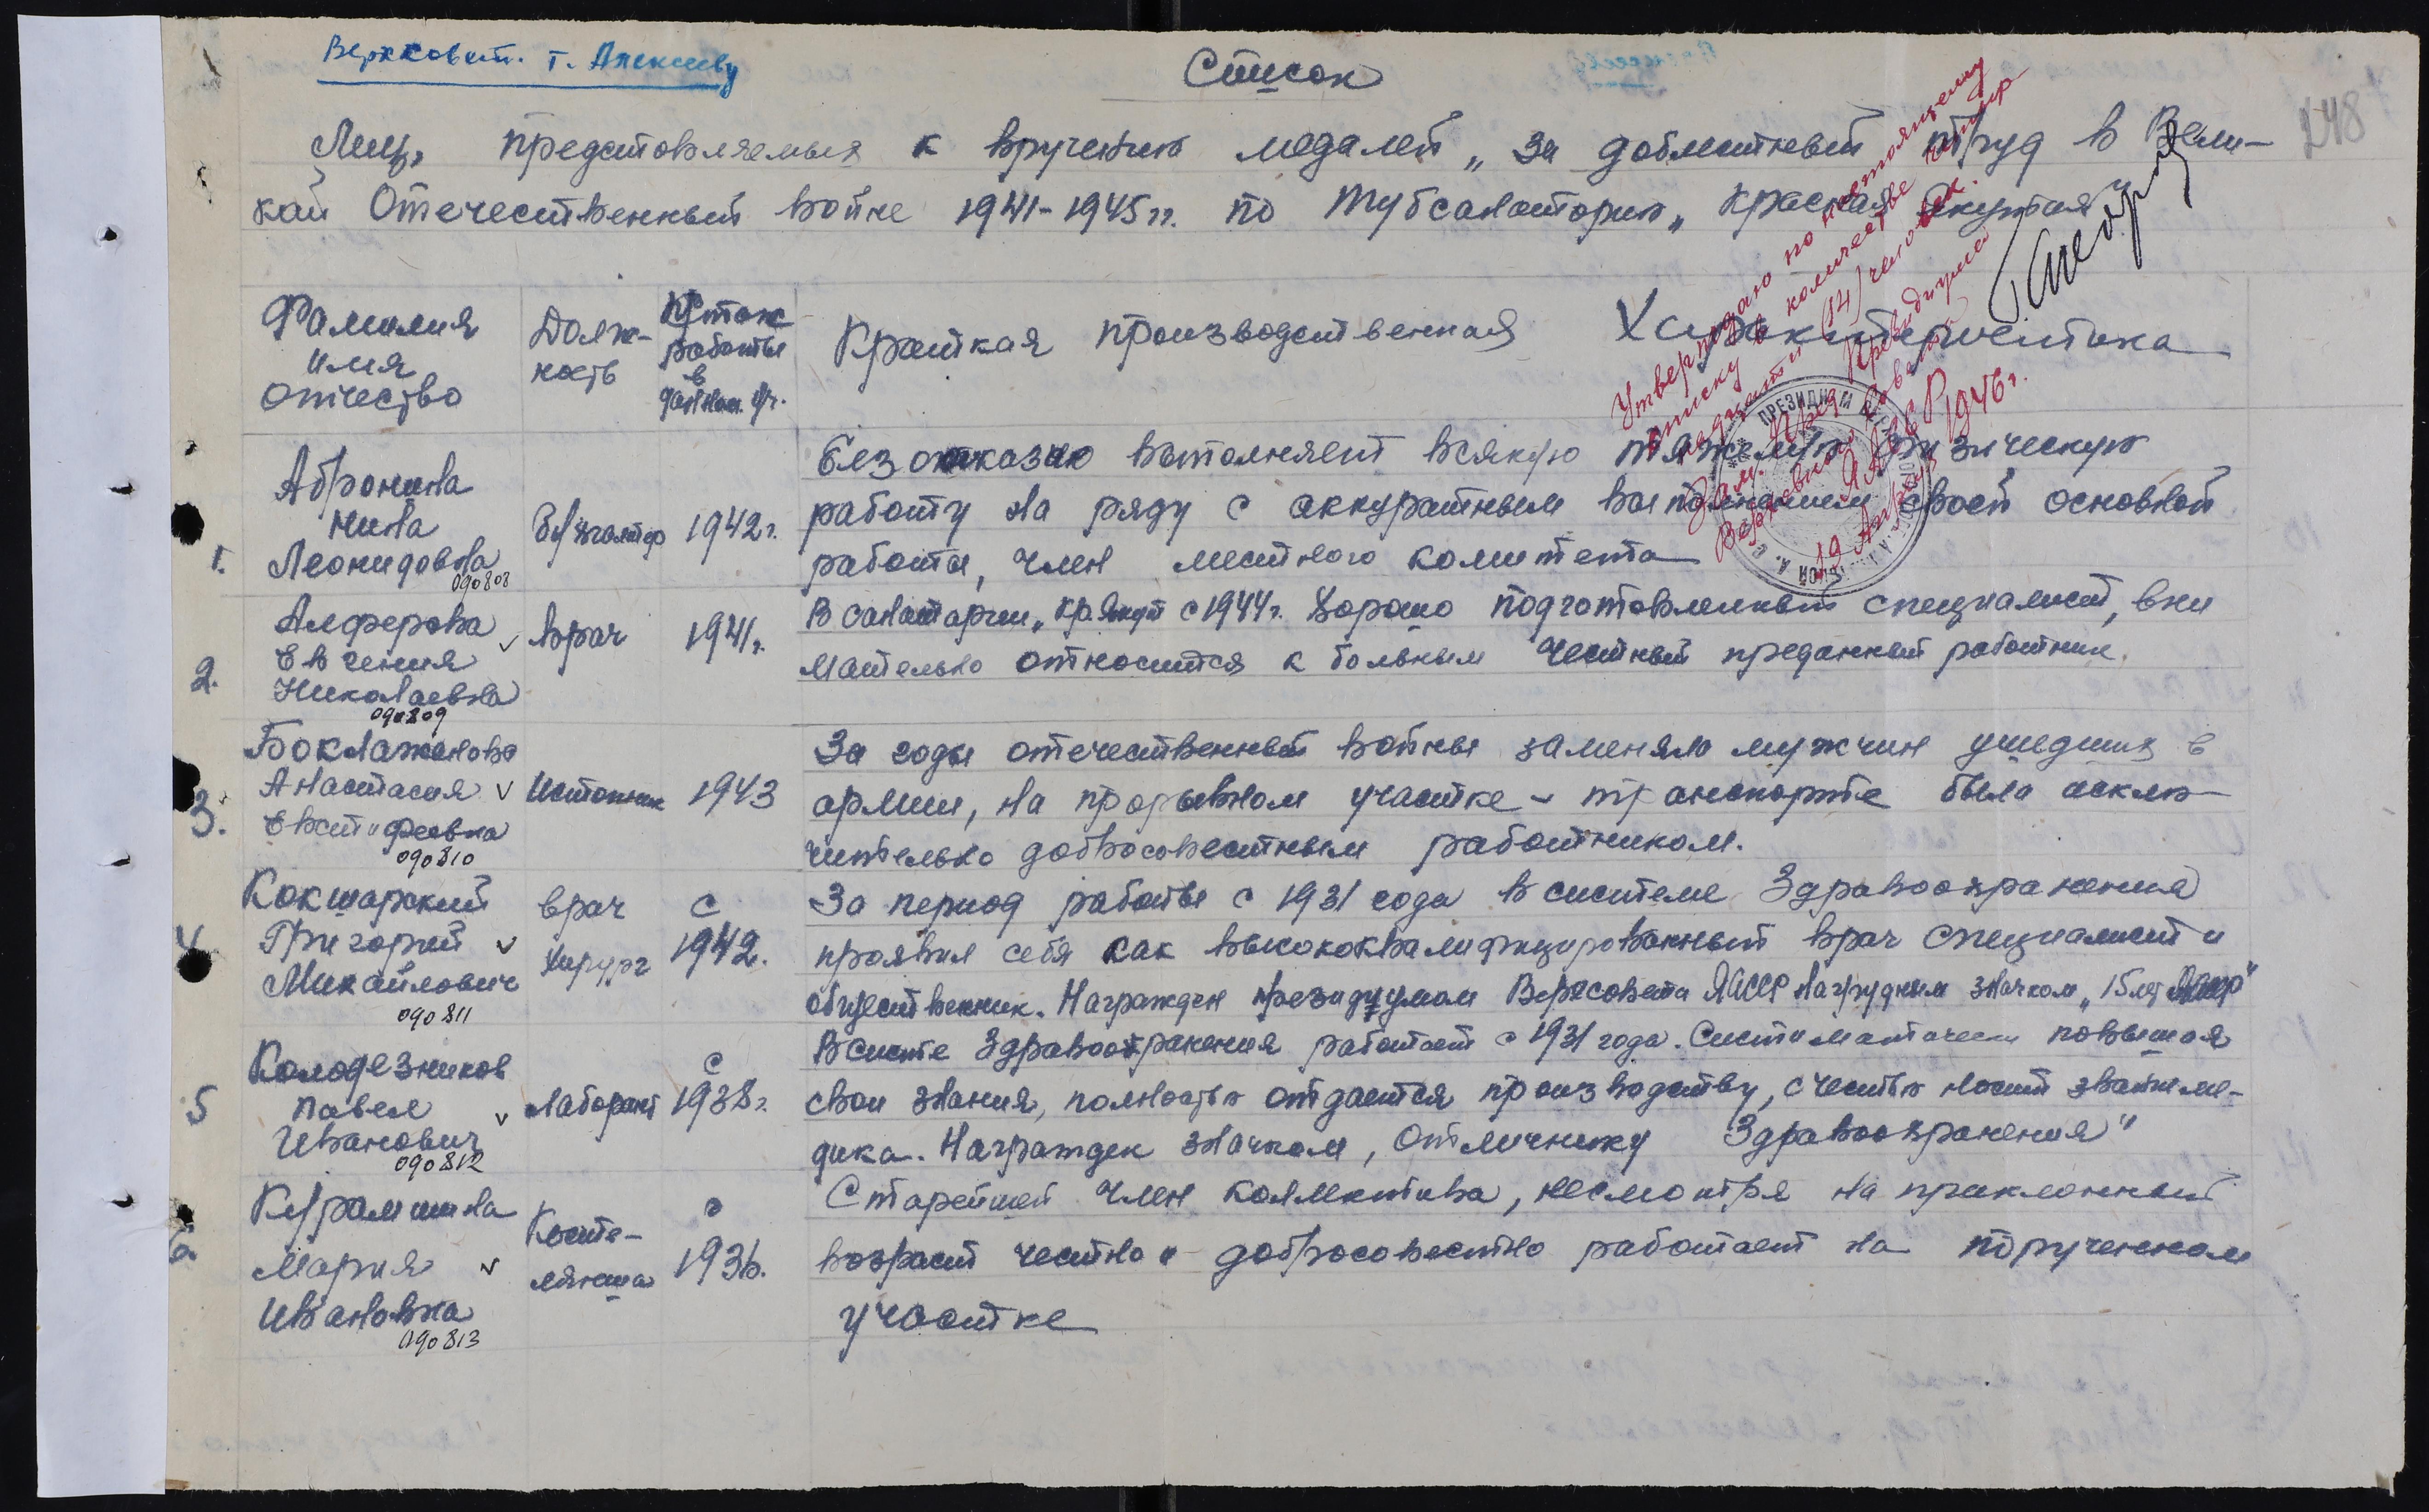 Верхсовет. т. Алексееву
248
Список
Лиц, представляемых к вручению медалей „За доблестный труд в Вели-
кой Отечественный войне 1941-1945 гг. по Тубсанаторию „Красная Якутия"
Утверждаю по настоящему
списку в количестве четыр
надцати (14) человек.
Зам. Пред Президиума
Верховного Совета
ЯАССР
19 Апреля 1946 г.
ПРЕЗИДИУМ ВЕРХОВНОГО
Фамилия
имя
отчество
Долж-
ность
работы
в
Краткая производственная Характеристика
1.
Абрамова
Нина
Леонидовна
090808
Бухгалтер
1942 г.
Безотказно выполняет всякую тяжелую физическую
работу на ряду с аккуратным выполнением своей основной
работы, член местного комитета
2.
Алферова
Евгения
Николаевна
090809
✓ Врач
1941 г.
В санатарии „Кр. Якут с 1944 г. Хорошо подготовленный специалист, вни
мательно относится к больным честный преданный работник.
3.
Боклажанова
Анастасия ✓
Евстифеевна
090810
Истопник
1943
За годы отечественный войны заменяла мужчин ушедших в
армии, на прорывном участке – транспорте была исклю-
чительно добросовестным работником.
4
Кокшарский
Григорий ✓
Михайлович
090811
врач
хирург
с
1942.
За период работы с 1931 года в системе Здравоохранения
проявил себя как высококвалифицированный врач специалист и
общественник. Награжден президиумом Верхсовета ЯАССР нагрудным значком „15 лет ЯАССР"
5
Колодезников
Павел ✓
Иванович
090812
Лаборант
с
1938 г.
В систе Здравоохранения работает с 1931 года. Систиматически повышая
свои знания, полностью отдается производству, с честью носит звание ме-
дика. Награжден значком, Отличнику Здравоохранения"
6.
Курамшина
Мария ✓
Ивановна
090813
Касте-
лянша
с
1936.
Старейшей член коллектива, несмотря на приклонный
возраст честно и добросовестно работает на порученном
участке